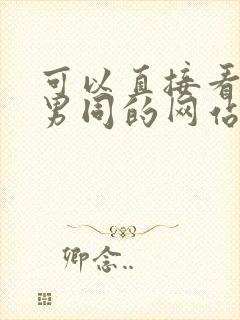 可以直接看
男同的网站
卿念..